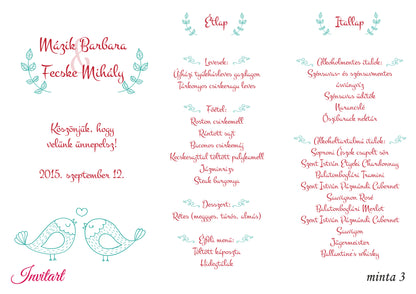 Mázik Barbara
&
Fecske Mihály
Köszönjük, hogy
velünk ünnepelsz!
2015. szeptember 12.
Invitart
Étlap
Levesek:
Újházi tyúkhúsleves gazdagon
Tárkonyos csirkeragu leves
Főétel:
Roston csirkemell
Rántott sajt
Baconos csirkemáj
Kecskesajttal töltött pulykamell
Jázminrizs
Steak burgonya
Desszert:
Rétes (meggyes, túrós, almás)
Éjféli menü:
Töltött káposzta
Hidegtálak
Itallap
Alkoholmentes italok:
Szénsavas- és szénsavmentes
ásványvíz
Szénsavas üdítők
Narancslé
Őszibarack nektár
Alkoholtartalmú italok:
Soproni Ászok csapolt sör
Szent István Etyeki Chardonnay
Balatonboglári Tramini
Szent István Pázmándi Cabernet
Sauvignon Rosé
Balatonboglári Merlot
Szent István Pázmándi Cabernet
Sauvignon
Jägermeister
Ballantine's whisky
minta 3